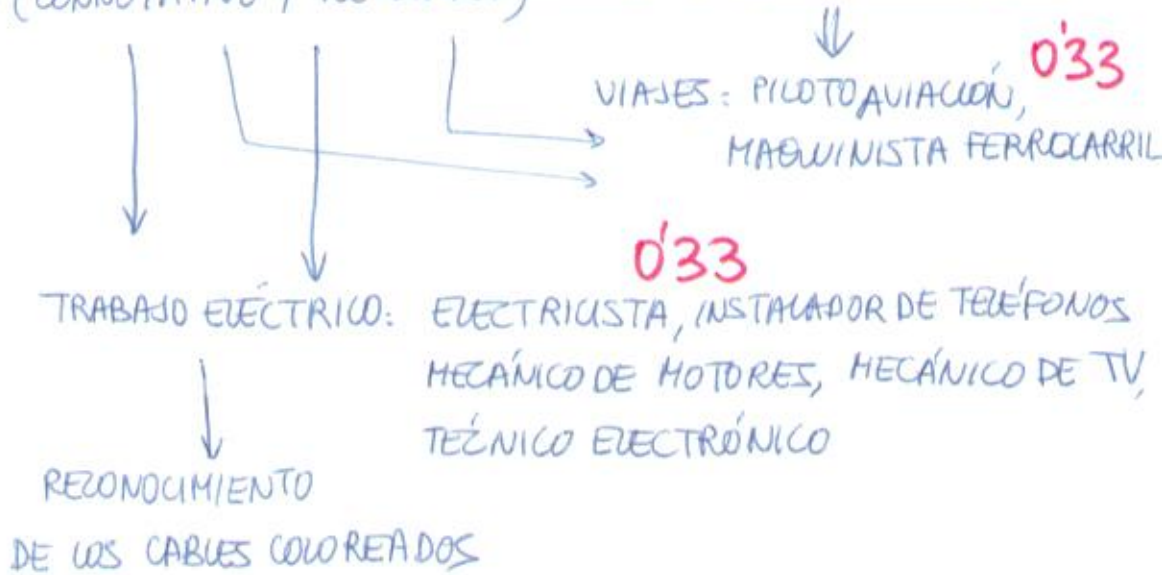 (CONNOTATIVO /
0'33
VIAJES: PILOTO AVIACIÓN,
MAQUINISTA FERROCARRIL
0'33
TRABAJO ELÉCTRICO: ELECTRICISTA, INSTALADOR DE TELÉFONOS
MECÁNICO DE MOTORES, MECÁNICO DE TV,
TÉCNICO ELECTRÓNICO
RECONOCIMIENTO
DE LOS CABLES COLOREADOS